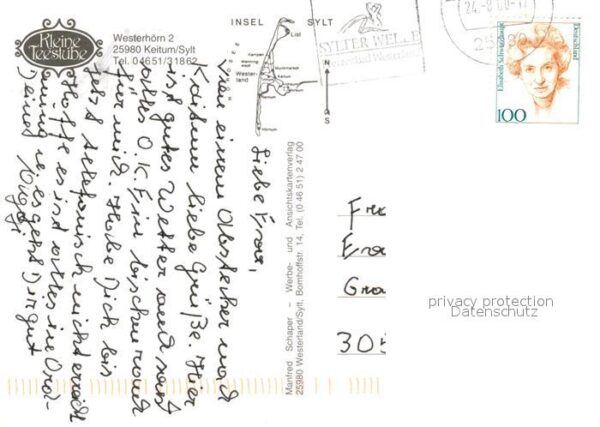 Kleine
Teestube
Westerhörn 2
25980 Keitum/Sylt
Tel. 04651/31862
INSEL SYLT
List
Kampen
Keitum
Wester-
land
N
S
SYLTER WELLE
24-8
25980
Elisabeth Schwarzhaupt
Deutschland
100
Liebe Erna,
von einem Abstecher nach
Keitum liebe Grüße. Hier
ist gutes Wetter und sonst
alles O.K. Ein bischen rauh
für mich. Habe Dich bis
jetzt telefonisch nicht erreicht
Hoffe es ist alles in Ord-
nung u. es geht Dir gut
Deine
Manfred Schaper – Werbe- und Ansichtskartenverlag
25980 Westerland/Sylt, Bomhoffstr. 14, Tel. (0 46 51) 2 47 00
Frau
Erna
305
privacy protection
Datenschutz